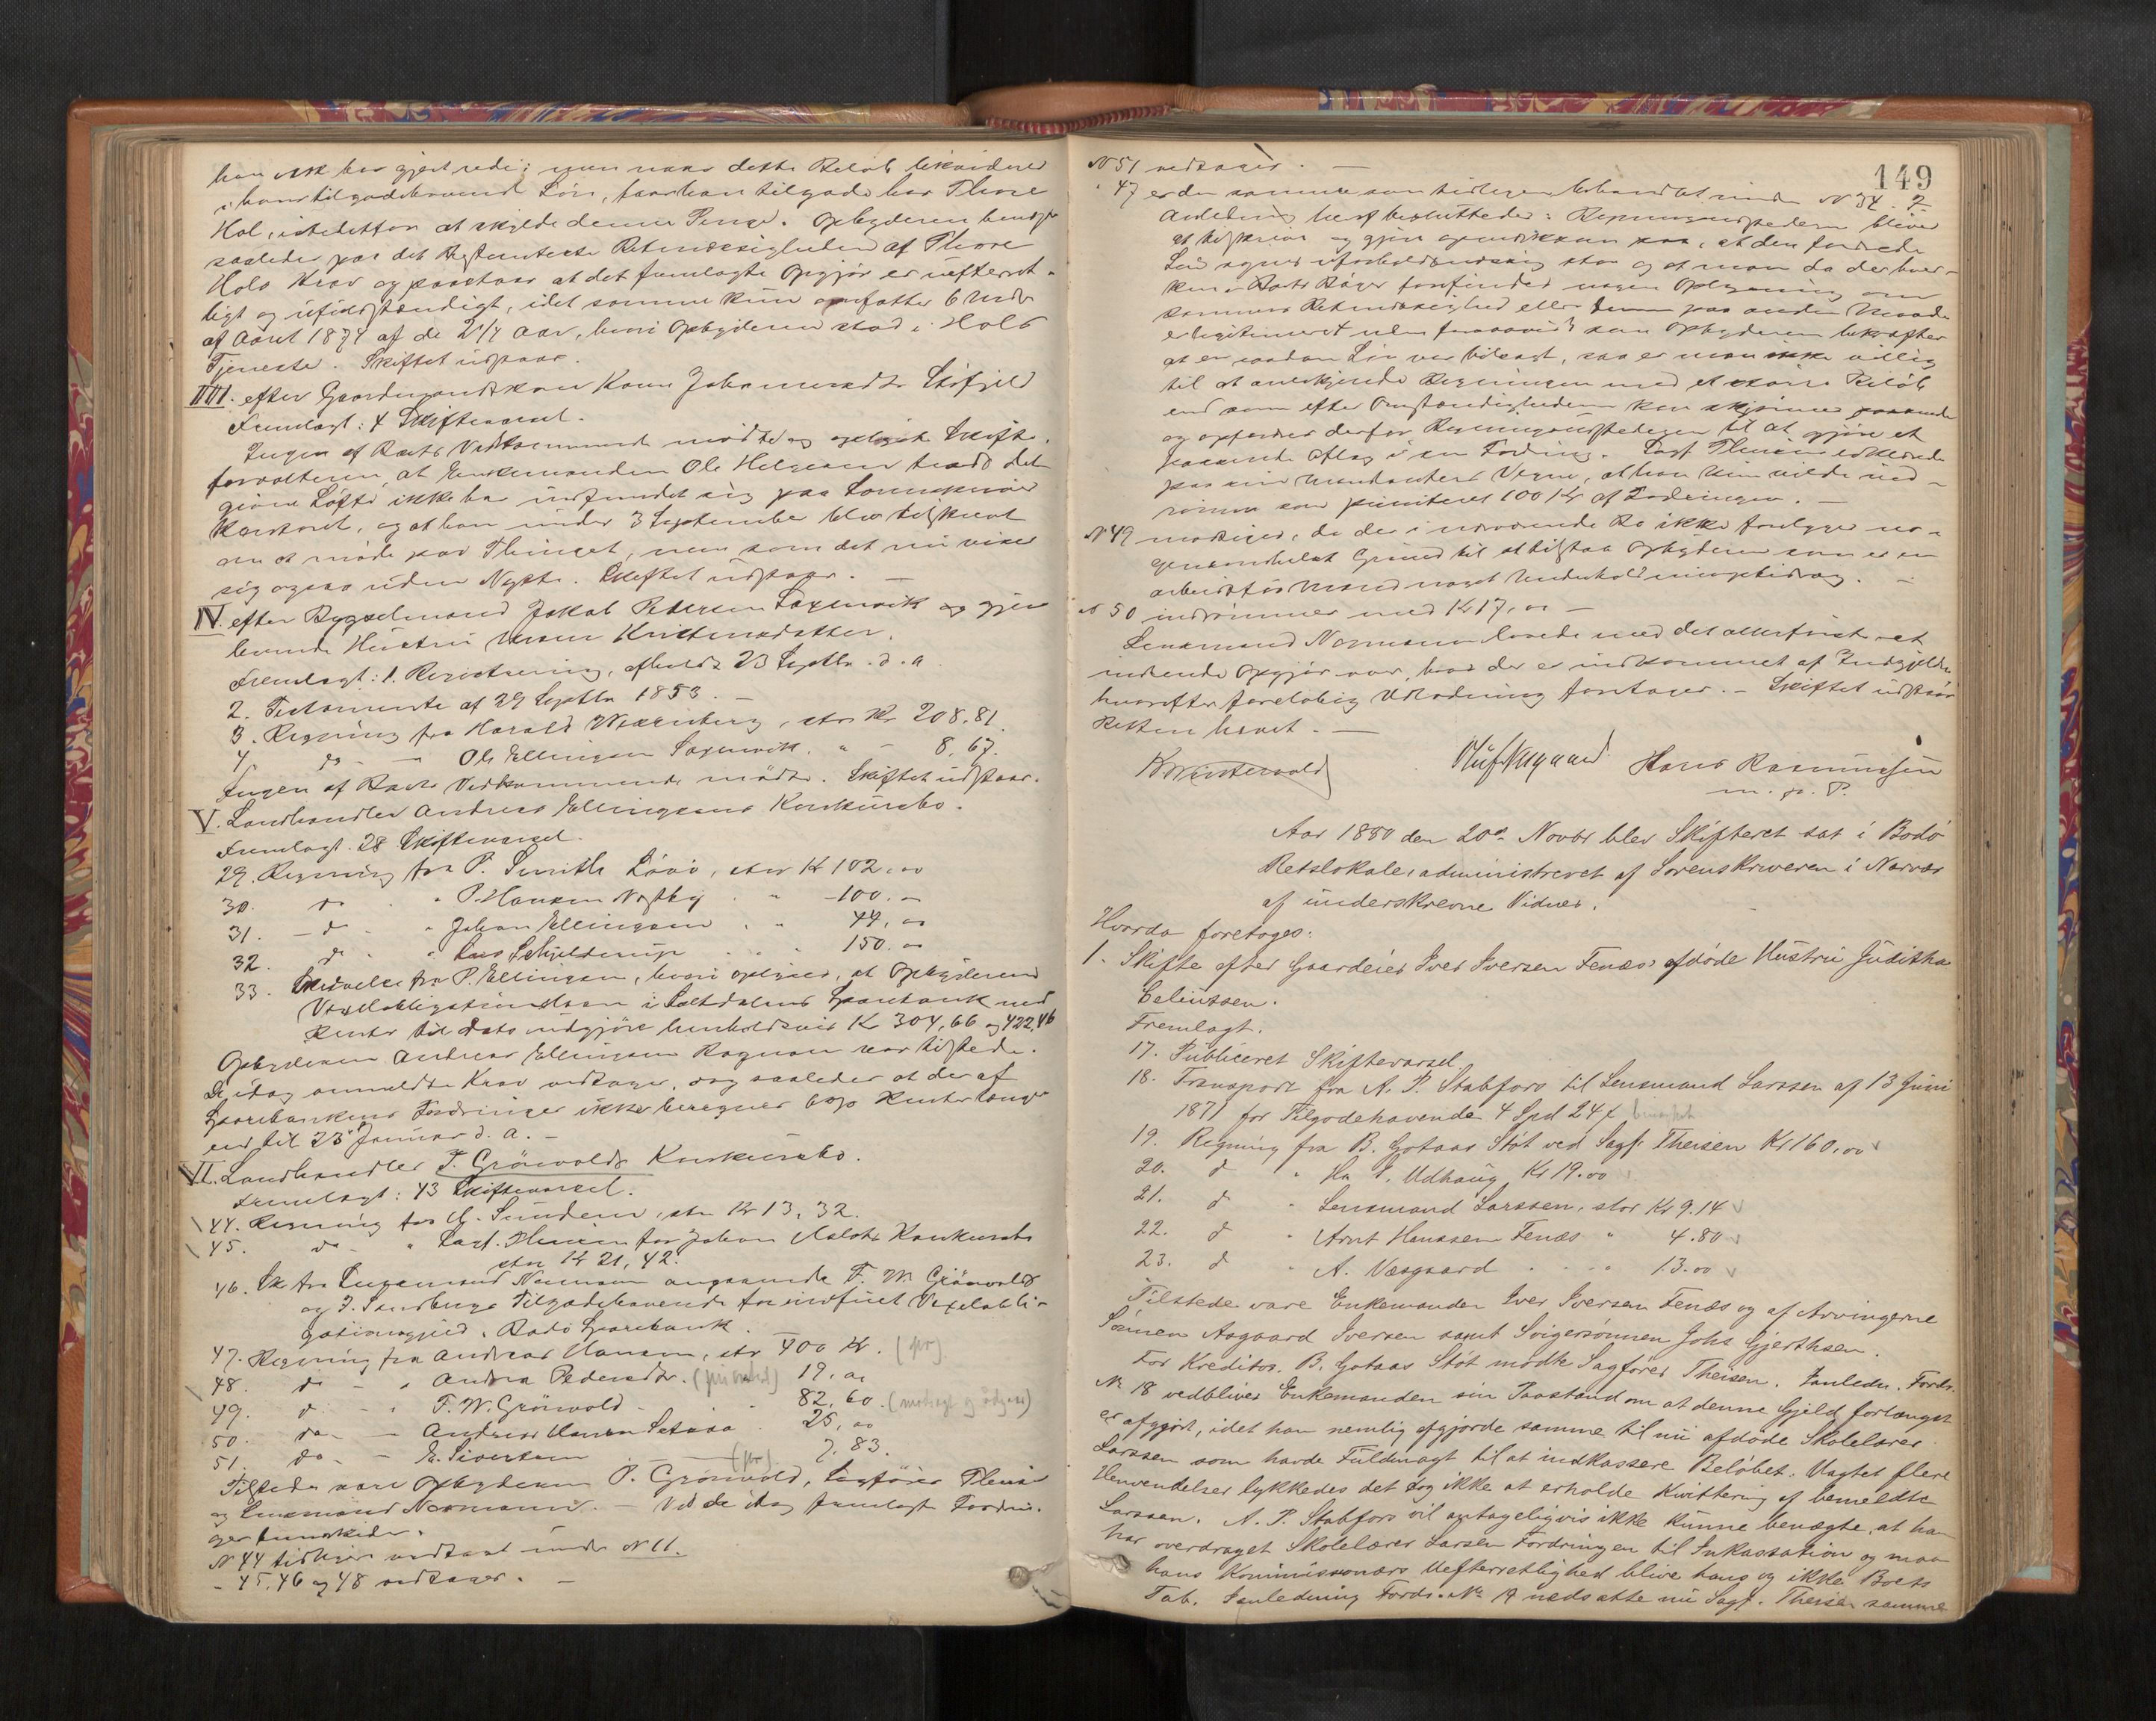 han ikke har gjort rede; men naar dette Beløb likvideres
i hans tilgodehavende Løn, faar han tilgode hos Thore
Hol, istedetfor at skylde denne Penge. Opbyderen
saaledes paa det bestemteste Retmæssigheden af Thore
Hols Krav og paastaar at det fremlagte Opgjør er uefterret-
ligt og ufuldstændigt, idet samme kun omfatter 6 Mdr
af Aaret 1874 af de 2 1/4 Aar, hvori Opbyderen stod i Hols
Tjeneste. Skiftet udstaar.
III. efter Gaardmandskone Karen Johannesdtr
Fremlagt: 4 Skiftevarsel.
Ingen af Boets Vedkommende mødte og oplyste Skifte-
forvalteren, at Enkemanden Ole Helgesen trods det
givne Løfte ikke har indfundet sig paa Sorenskriver
Kontoret, og at han under 3 September blev tilskrevet
om at møde paa Thinget, men som det nu viser
sig ogsaa uden Nytte. Skiftet udstaar. —
IV. efter Bygselmand Jakob Petersen Saxenvik og gjen
levende Hustru Maren Kristensdatter.
Fremlagt: 1. Registrering, afholdt 23 Septbr. d. a.
2. Testamente af 29 Septbr 1853. —
3. Regning fra Harald Wexenberg, stor Kr 208.81.
4. do — Ole Ellingsen Saxenvik " - 8.67.
Ingen af Boets Vedkommende mødte. Skiftet udstaar.
V. Landhandler Andreas Ellingsens Konkursbo.
Fremlagt. 28 Skiftevarsel.
29. Regning fra P. Smith Løvø, stor Kr 102,00
30. do " P. Hansen " - 100.
31. - do " Johan Ellingsen " " 44,00
32. do " Lars Schjelderup " 150.00
33. Skrivelse fra P. Ellingsen, hvori oplyses, at Opbyderens
Vexelobligationslaan i Saltdalens Sparebank med
Renter til Dato udgjøre henholdsvis Kr 304,66 og 422,46
Opbyderen Andreas Ellingsen Rognan var tilstede.
De idag anmeldte Krav vedtages, dog saaledes at der af
Sparebankens Fordringer ikke beregnes 6% Renter længer
end til 23 Januar d. A. —
VI. Landhandler P. Grönvolds Konkursbo.
Fremlagt: 43 Skiftevarsel.
44. Regning fra M. Sundem, stor Kr 13,32.
45. do " Sagf. Theisen for Johan Konkursbo
stor Kr 21,42.
46. Sk fra Lensmand Normann angaaende F. W. Grönvolds
og J. Tilgodehavende for indfriet Vexelobli-
gationsgjeld i Bodø Sparebank.
47. Regning fra Andreas Hansen, stor 400 Kr. (pr)
48. do - " Andrea Pedersdtr. 19.00
49. do - " F. W. Grönvold - 82,60.
50. do - — Andreas Hansen 25,00
51. do - — E. Sivertsen (pr) 7.83.
Tilstede vare Opbyderen P. Grönvold, Sagfører Theisen
og Lensmand Normann. — Ved de idag fremlagte Fordrin-
ger bemærkedes.
N 44 tidligere vedtaget under N 11.
- 45, 46 og 48 vedtages. —
149
N 51 vedtages. —
" 47 er den samme som tidligere behandlet under N 34. I
Anledning heraf besluttedes: Regningsudstederen bliver
at tilskrive og gjøre opmærksom paa, at den fordrede
Løn synes uforholdsmæssig stor og at man da der hver-
ken i Boets Bøger forefindes nogen Oplysning om
sammes Retmæssighed eller denne paa anden Maade
er legitimeret uden forsaavidt som Opbyderen bekræfter
at en saadan Løn var tilsagt, saa er man ikke villig
til at anerkjende Regningen med et større Beløb
end som efter Omstændighederne kan skjønnes passende
og opfordres derfor Regningsudstederen til at gjøre et
passende Afslag i sin Fordring. Sagf. Theisen erklærede
paa sin Mandants Vegne, at han kun vilde ind-
rømme som prioriteret 100 Kr af Fordringen. —
N 49 modsiges, da der i nærværende Bo ikke foreligger no-
gensomhelst Grund til at tilstaa Opbyderen som er en
arbeidsfør Mand noget Underholdningsbidrag. —
N 50 indrømmes med Kr 17,00 —
Lensmand Normann lovede med det allerførste at
indsende Opgjør over, hvad der er indkommet af Indgjelden
hvorefter foreløbig Udlodning foretages. — Skiftet udstaar
Retten hævet. —
Olufsgaard Hans Rasmussen
m. p. P.
Aar 1880 den 20de Novbr blev Skifteret sat i Bodø
Retslokale, administreret af Sorenskriveren i Nærvær
af underskrevne Vidner.
Hvorda foretoges:
1. Skifte efter Gaardeier Iver Iversen Fenæs' afdøde Hustru Juditha
Celiussen.
Fremlagt.
17. Publiceret Skiftevarsel
18. Transport fra A. P. Stabfors til Lensmand Larssen af 13 Juni
1871 for Tilgodehavende 4 Spd 24 s.
19. Regning fra B. Gotaas Støt ved Sagf. Theisen Kr 160,00
20. d " Ha I. Udhaug Kr 19.00
21. d " Lensmand Larssen, stor Kr 9.14
22. d " Arnt Hanssen Fenæs " 4.80
23. d " A. Næsgaard . . . 13.00
Tilstede vare Enkemanden Iver Iversen Fenæs og af Arvingerne
Sønnen Aagaard Iversen samt Svigersønnen Johs Gjerthsen.
For Kreditor B. Gotaas Støt mødte Sagfører Theisen. Ianledn. Fordr.
No 18 vedbliver Enkemanden sin Paastand om at denne Gjeld forlængst
er afgjort, idet han nemlig afgjorde samme til nu afdøde Skolelærer
Larssen som havde Fuldmagt til at indkassere Beløbet. Uagtet flere
Henvendelser lykkedes det dog ikke at erholde Kvittering af bemeldte
Larssen. A. P. Stabfors vil antageligvis ikke kunne benægte, at han
har overdraget Skolelærer Larsen Fordringen til Inkassation og maa
hans Kommissionærs Uefterrettlighed blive hans og ikke Boets
Tab. Ianledning Fords. No 19 nedsatte nu Sagf. Theisen samme